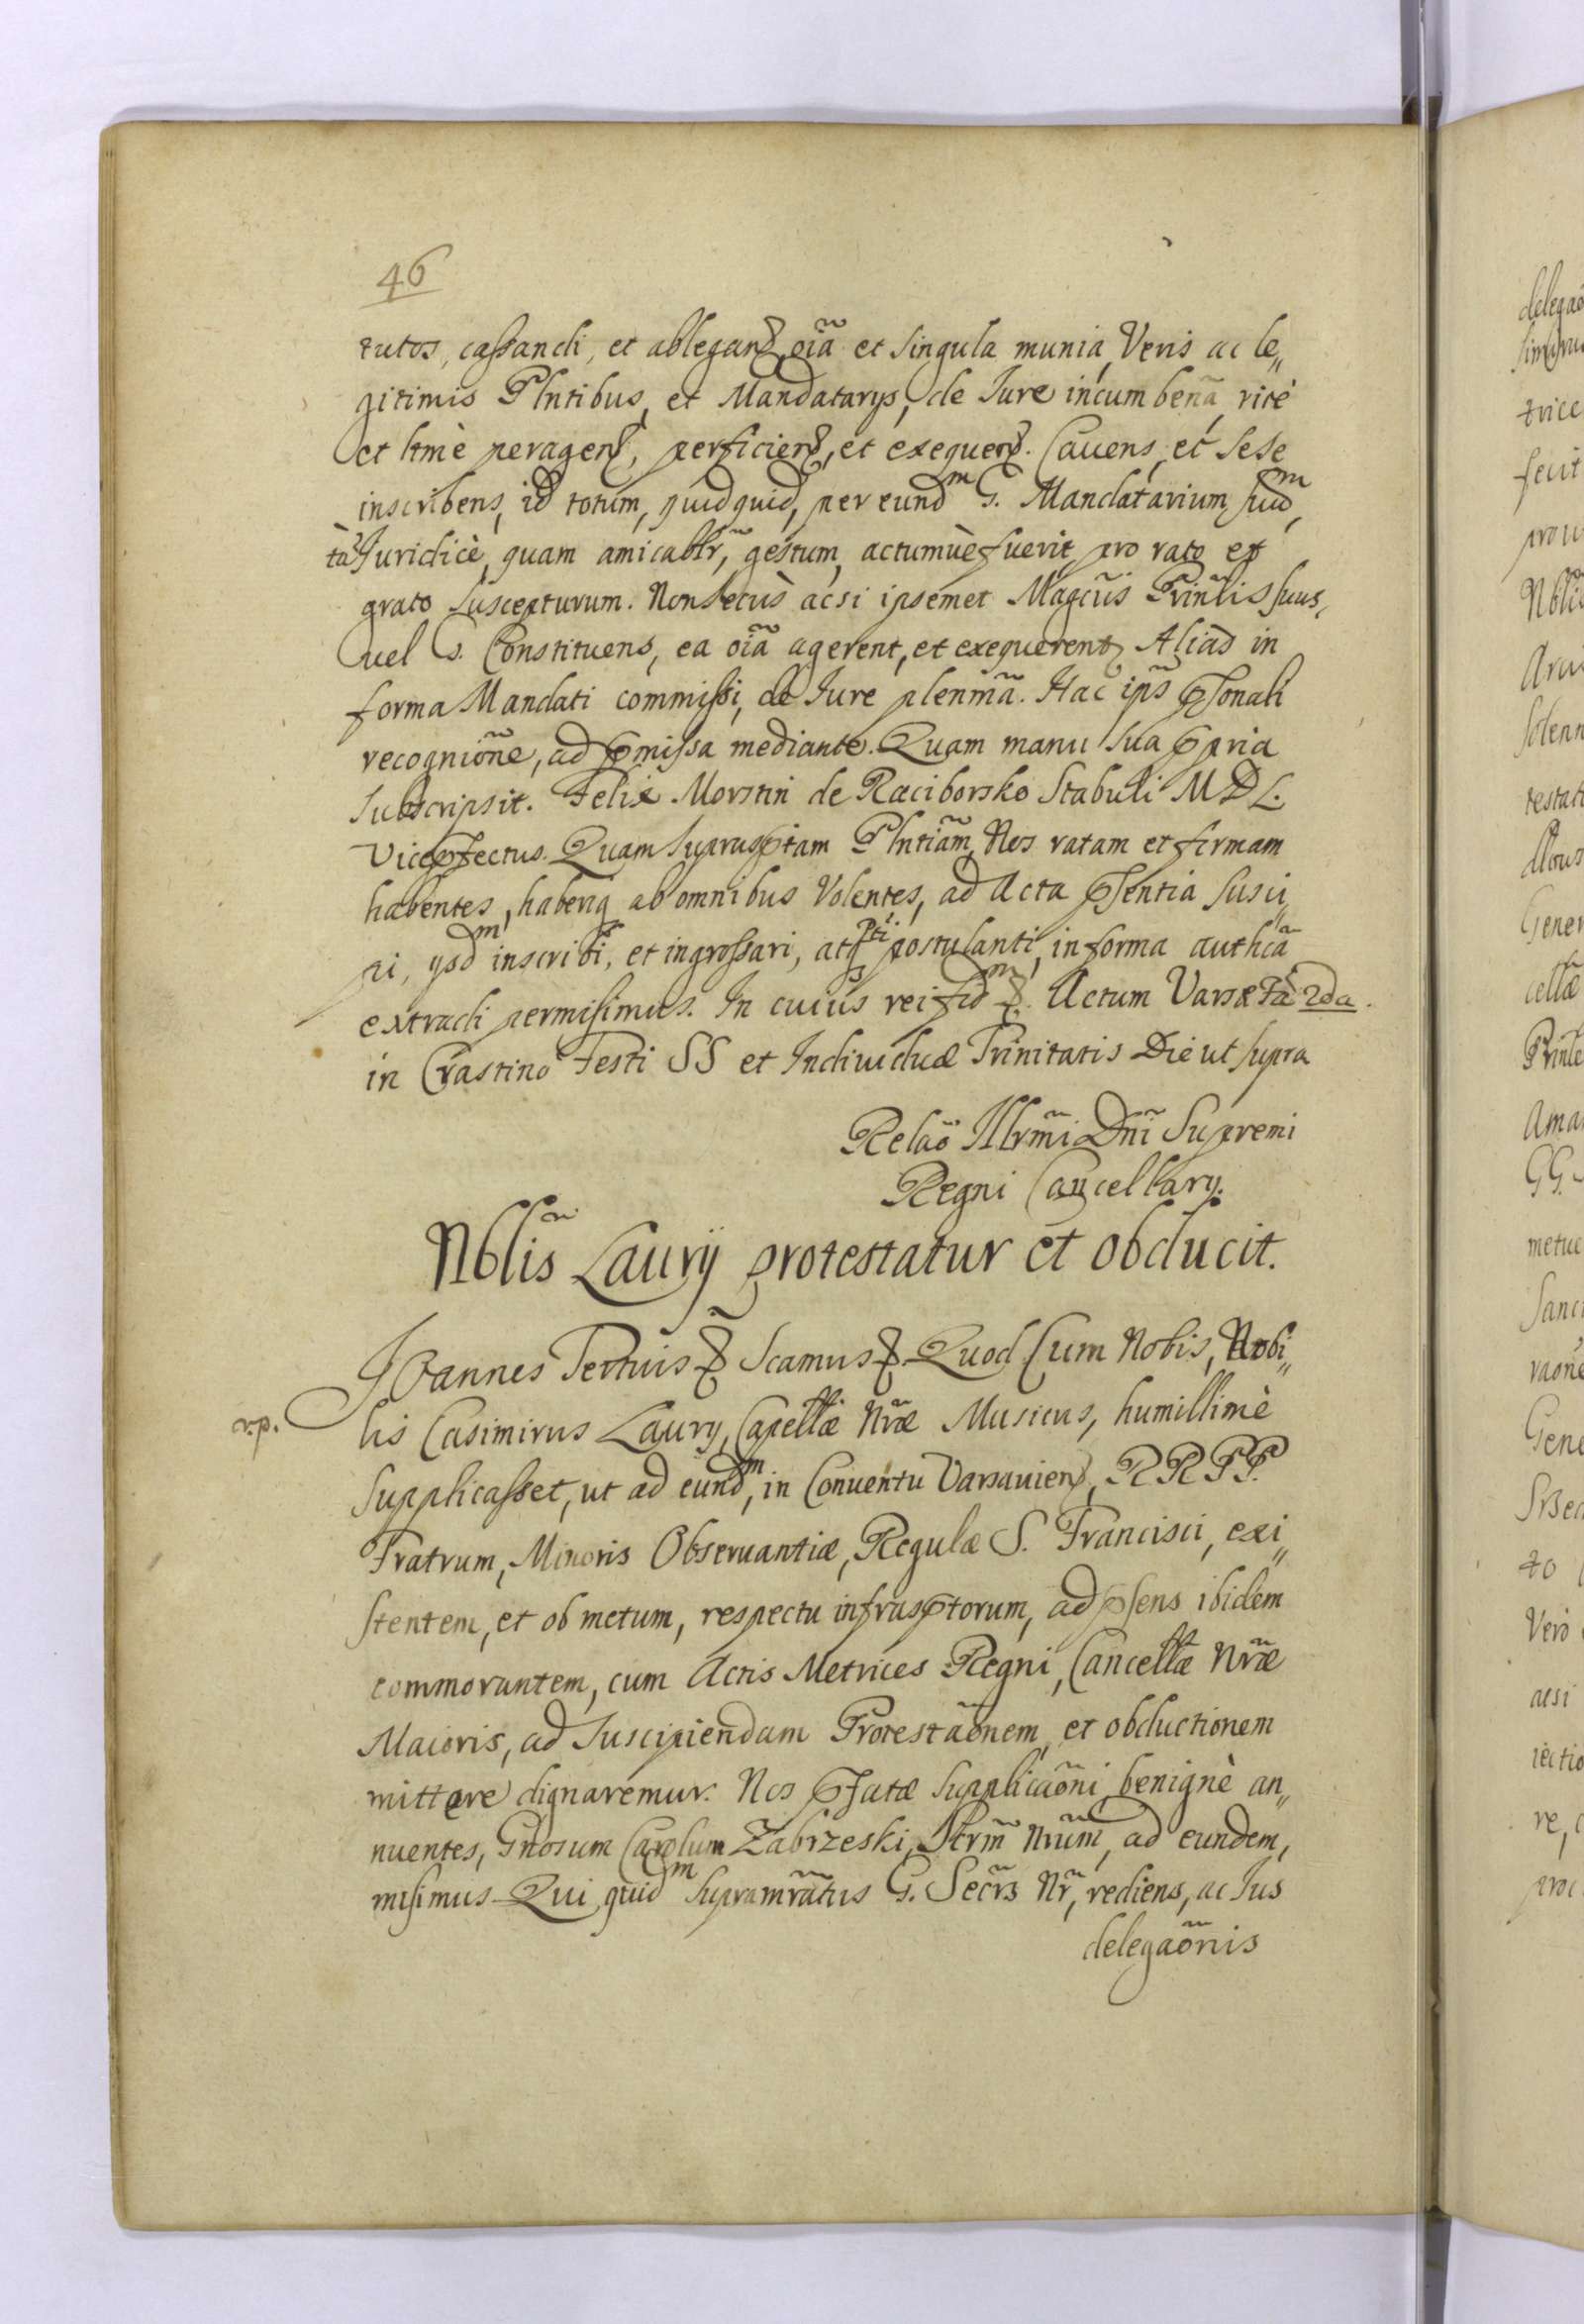 46
tutos, cassandi, et ablegan. oĩa et singula munia, Veris ac le„
gitimis Plntibus, et Mandatarys, de Jure incumbeña, ritè
et ltmè peragen., perficien., et exequen. Cavens, et sese
inscribens, id totum, quidquid, per eundm G. Mandatarium suum,
tã Juridicè, quam amicablr̃, gestum, actumuè fuerit, pro rato et
grato suscepturum. Non secùs acsi ipsemet Magcũs Prinlis suus,
vel G. Constituens, ea oĩa agerent, et exequerent. Aliàs in
forma Mandati commissi, de Jure plenmã. Hac ip̃s psonali
recognioñe, ad pmissa mediante. Quam manu sua ppria
subscripsit. Felix Morstin de Raciborsko Stabuli M D L.
Vicepfectus. Quam suprasptam Plntiãm, Nos ratam et firmam
habentes, haberiq ab omnibus Volentes, ad Acta psentia susci„
pi, qsdm inscribi, et ingrossari, atq Pti postulanti, in forma authcã
extradi permisimus. In cuius rei fidm &. Actum Varsae Fã 2da.
in Crastino Festi SS et Individuæ Trinitatis Die ut supra
Relaõ Illrm̃i Dnĩ Supremi
Regni Cancellary.
Nblis̃ Laurij protestatur et obducit.
Joannes Tertius & Scamus & Quod Cum Nobis, Nobi„
r.p.
lis Casimirus Laury, Capellæ Nræ̃ Musicus, humillimè
supplicasset, ut ad eundm, in Conventu Varsavien, RR PP.
Fratrum, Minoris Observantiæ, Regulæ S. Francisci, exi„
stentem, et ob metum, respectu infrasptorum, ad psens ibidem
commorantem, cum Actis Metrices Regni, Cancellæ Nræ̃
Maioris, ad suscipiendam Protestãonem, et obductionem
mittere dignaremur. Nos pfatæ supplicaõni, benignè an„
nuentes, Gnosum Carolum Zabrzeski, Strm̃ Nrum̃, ad eundem,
misimus. Qui quidm supramrãtus G. Secrs̃ Nr̃, rediens, ac Jus
delegaõnis